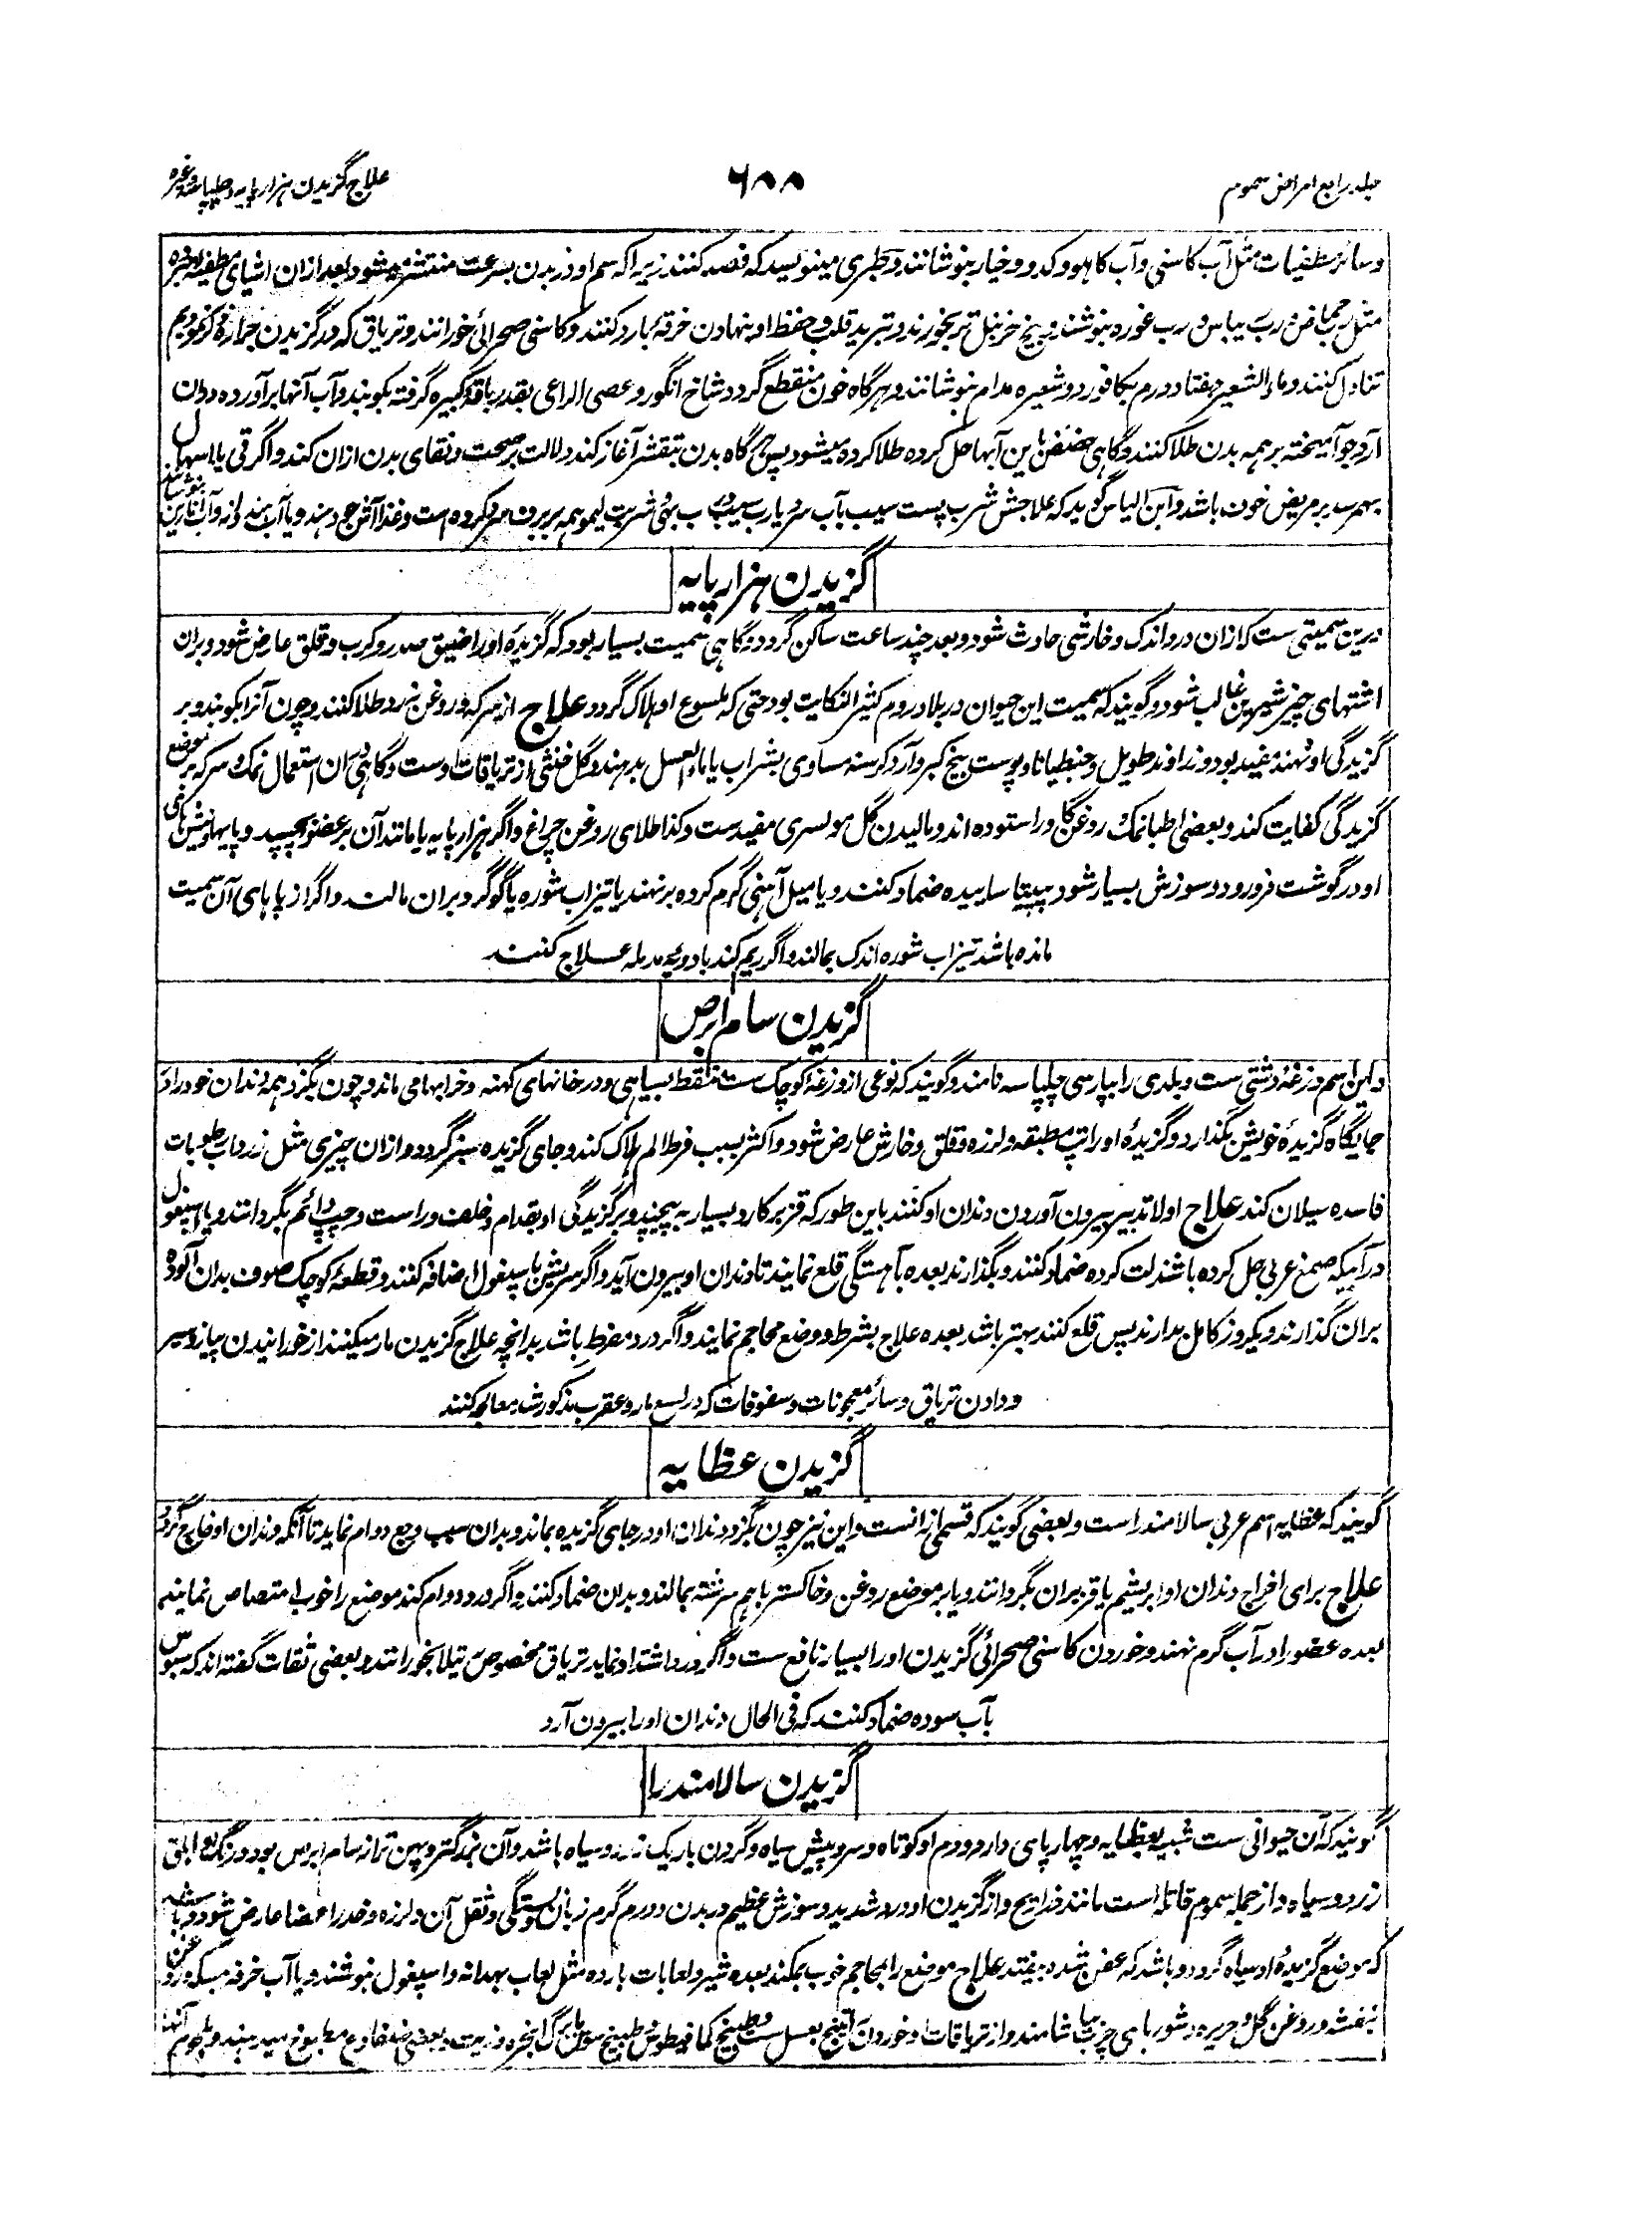 جلد رابع امراض سموم
۶۸۸
علاج گزیدن هزارپایه و چلپاسه وغیره
و سائر مطفیات مثل آب کاسنی و آب کاهو و کدو و خیار بنوشانند و طبری مینویسد که فصد کنند زیرا که سم او در بدن بسرعت منتشر میشود و بعد ازان اشیای مطفیه مبرده
مثل رب حماض و رب ریباس و رب غوره بنوشند و بیخ حنظل تر بخورند و تبرید قلب و حفظ او بنهادن خرقهٔ بارد کنند و کاسنی صحرائی خورانند و تریاق که در گزیدن جراره مذکور بودیم
تناول کنند و ماءالشعیر هفتاد درم بکافور دو شعیره مدام بنوشانند و هرگاه خون منقطع گردد شاخ انگور و عصی الراعی بقدر باقهٔ کبیره گرفته بکوبند و آب آنها برآورده دران
آرد جو آمیخته بر همه بدن طلا کنند و گاهی حضض باین آبها حل کرده طلا کرده میشود پس هرگاه بدن بتقشر آغاز کند دلالت بر صحت و نقای بدن ازان کند و اگر قی یا اسهال
بهم رسد بر مریض خون باشد و ابن الیاس گوید که علاجش شرب پست سیب بآب سرد یا رب سیب و رب بهی و شربت لیمو همه ببرف سرد کرده است و غذا آش جو دهند و یا آب هندوانه و آب انارین بنوشانند
گزیدن هزارپایه
درین سمیتی ست که ازان درد اندک و خارشی حادث شود و بعد چند ساعت ساکن گردد و گاهی سمیت بسیار بود که گزیدهٔ او را ضیق صدر و کرب و قلق عارض شود و بران
اشتهای چیز شیرین غالب شود و گویند که سمیت این حیوان در بلاد روم کثیر النکایت بود حتی که ملسوع او هلاک گردد علاج از سرکه و روغن زرد طلا کنند و چون آنرا بکوبند و بر
گزیدگی او نهند مفید بود و زراوند طویل و جنطیانا و پوست بیخ کبر و آرد کرسنه مساوی بشراب یا ماءالعسل بدهند و گل خنثی از تریاقات اوست و گاهی دران استعمال نمک و سرکه بر موضع
گزیدگی کفایت کند و بعضی اطبا نمک و روغن گاو را ستوده اند و مالیدن گل مولسری مفیدست و کذا طلای روغن چراغ و اگر هزارپایه یا مانند آن بر عضو بچسپد و پایها و نیش های
او در گوشت فرو رود و سوزش بسیار شود پپیتا ساییده ضماد کنند و یا میل آهنی گرم کرده بر نهند یا تیزاب شوره یا گوگرد بران مالند و اگر از پاهای آن سمیت
مانده باشد تیزاب شوره اندک بمالند و اگر ریم کند بادویهٔ مدمله علاج کنند
گزیدن سام ابرص
و این اسم وزغهٔ دشتی ست و بلدی را بپارسی چلپاسه نامند و گویند که نوعی از وزغهٔ کوچک ست منقط بسیاهی و در خانهای کهنه و خرابها می ماند و چون بگزد همه دندان خود را در
جایگاه گزیدهٔ خویش بگذارد و گزیدهٔ او را تپ مطبقه و لرزه و قلق و خارش عارض شود و اکثر بسبب فرط الم هلاک کند و جای گزیده سبز گردد و ازان چیزی مثل زرداب و رطوبات
فاسده سیلان کند علاج اولا تدبیر بیرون آوردن دندان او کنند باین طور که قز بر کارد بسیار به پیچند و بر گزیدگی او بقدام و خلف و راست و چپ دائم بگردانند و یا اسپغول
در آبیکه صمغ عربی حل کرده باشند لت کرده ضماد کنند و بگذارند بعده بآهستگی قلع نمایند تا دندان او بیرون آید و اگر سریش با سپغول اضافه کنند و قطعهٔ کوچک صوف بدان آلوده
بران گذارند و یکروز کامل بدارند پس قلع کنند بهتر باشد بعده علاج بشرط و وضع محاجم نمایند و اگر درد مفرط باشد بدانچه علاج گزیدن مار میکنند از خورانیدن پیاز و سیر
و دادن تریاق و سائر معجونات و سفوفات که در لسع مار و عقرب مذکور شد معالجه کنند
گزیدن عظایه
گویند که عظایه اسم عربی سالامندراست و بعضی گویند که قسمی ازانست و این نیز چون بگزد دندان او در جای گزیده بماند و بدان سبب وجع دوام نماید تا آنکه دندان او خارج گردد
علاج برای اخراج دندان او ابریشم یا قز بران بگردانند و یا بر موضع روغن و خاکستر باهم سرشته بمالند و بدان ضماد کنند و اگر درد دوام کند موضع را خوب امتصاص نمایند
بعده عضو را در آب گرم نهند و خوردن کاسنی صحرائی گزیدن او را بسیار نافع ست و اگر درد اشتداد نماید تریاق مخصوص رتیلا بخورانند و بعضی ثقات گفته اند که سبوس
بآب سوده ضماد کنند که فی الحال دندان او را بیرون آرد
گزیدن سالامندرا
گویند که آن حیوانی ست شبیه بعظایه و چهار پای دارد و دم او کوتاه و سر و پیش سیاه و گردن باریک زرد و سیاه باشد و آن بزرگتر و پهن تر از سام ابرص بود و رنگ او ابلق
زرد و سیاه و از جمله سموم قاتله است مانند ذراریح و از گزیدن او درد شدید و سوزش عظیم در بدن و ورم گرم زبان و بستگی و ثقل آن و لرزه و خدر اعضا عارض شود و باشد
که موضع گزیدهٔ او سیاه گردد و باشد که عفن شده بیفتد علاج موضع را بمحاجم خوب بمکند بعده شیر و لعابات بارده مثل لعاب بهدانه و اسپغول بنوشند و یا آب خرفه مسکه و روغن
بنفشه و روغن گل و حریره و شوربا می چرب بیاشامند و از تریاقات او خوردن بعسل ست و طبیخ کمافیطوس و طبیخ سوسن با برگ انجره و زیت و بعضی ضفادع مطبوخ میدهند